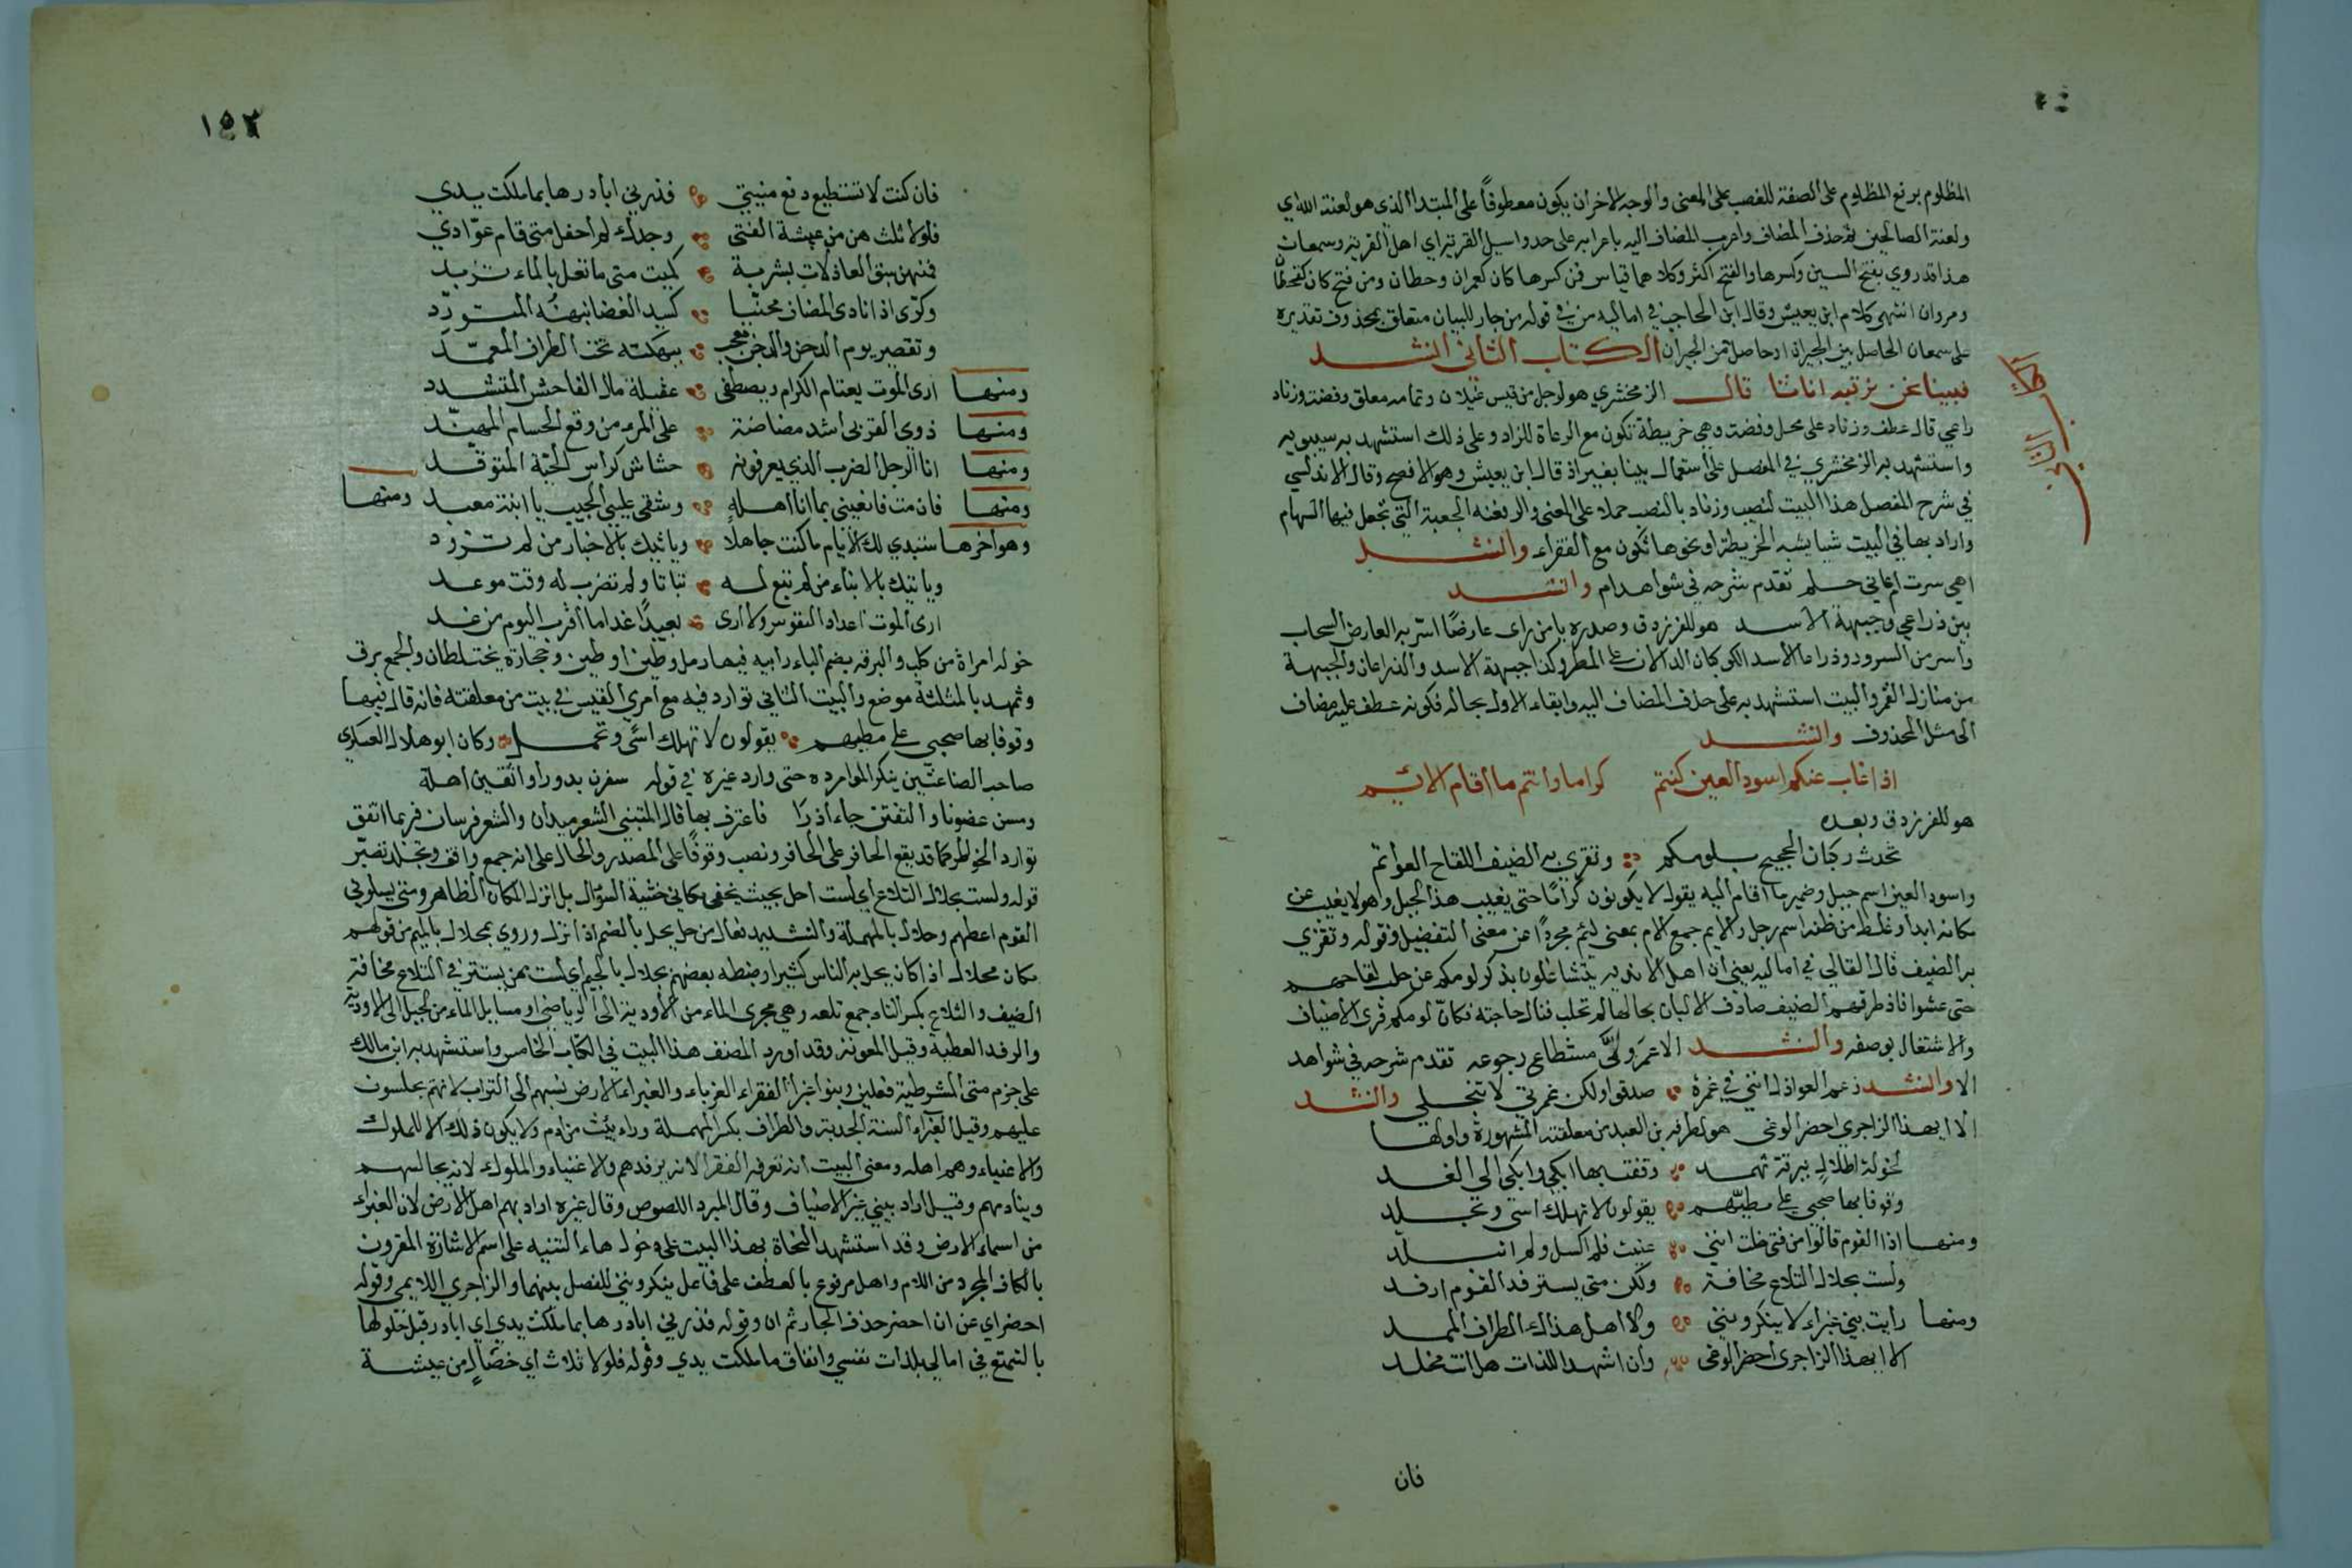 المظلوم برفع المظلوم على الصفة للغصب على المعنى والوجه الاخر ان يكون معطوفاً على المبتدا الذي هو لعنة الله اي
ولعنة الصالحين ثم حذف المضاف واعرب المضاف اليه باعرابه على حد واسيل القرية اي اهل القرية وسمعان
هذا قد روي بفتح السين وكسرها والفتح اكثر وكلاهما قياس فمن كسرها كان كعمران وحطان ومن فتح كان كقحطان
ومروان انتهى كلام ابن يعيش وقال ابن الحاجب في اماليه من في قوله من جار للبيان متعلق بمحذوف تقديره
على سمعان الحاصل بين الجيران او حاصل من الجيران الكتاب الثاني انشد
فبينا نحن نرقبه اتانا قال الزمخشري هو لرجل من قيس عيلان وتمامه معلق وفضة وزناد
راعي قال عطف وزناد على محل وفضة وهي خريطة تكون مع الرعاة للزاد وعلى ذلك استشهد به سيبويه
واستشهد به الزمخشري في المفصل على استعمال بينا بغير اذ قال ابن يعيش وهو الافصح وقال الاندلسي
في شرح المفصل هذا البيت لنصيب وزناد بالنصب حملا على المعنى والوفضة الجعبة التي تجعل فيها السهام
واراد بها في البيت شيا يشبه الخريطة او نحوها تكون مع الفقراء وانشد
اهي سرت ام عاني حلم تقدم شرحه في شواهد ام وانشد
بين ذراعي وجبهة الاسد هو للفرزدق وصدره يا من راى عارضًا اسر به العارض السحاب
واسر من السرور وذراعا الاسد الكوكبان الدالان على المطر وكذا جبهة الاسد والذراعان والجبهة
من منازل القمر والبيت استشهد به على حذف المضاف اليه وابقاء الاول بحاله لكونه عطف عليه مضاف
الى مثل المحذوف وانشد
اذا غاب عنكم اسود العين كنتم كراما وانتم ما اقام الائم
هو للفرزدق وبعده
تحدث ركبان الحجيج بلومكم وتقري به الضيف اللقاح العواتم
واسود العين اسم جبل وضمير ما اقام اليه يقول لا يكونون كرامًا حتى يغيب هذا الجبل وهو لا يغيب عن
مكانه ابدا وغلط من ظنه اسم رجل والايم جمع الام بمعنى لئيم مجردًا عن معنى التفضيل وقوله وتقري
به الضيف قال القالي في اماليه يعني ان اهل الاندية يتشاغلون بذكر لومكم عن حلب لقاحهم
حتى عشوا فاذ طرقهم الضيف صادف الالبان بحالها لم تحلب فنال حاجته فكان لومكم قرى الاضياف
والاشتغال بوصفه وانشد الا عمر ولى مستطاع رجوعه تقدم شرحه في شواهد
الا وانشد زعم العواذل انني في غمرة صدقوا ولكن غمرتي لا تنجلي وانشد
الا ايهذا الزاجري احضر الوغى هو لطرفة بن العبد من معلقته المشهورة واولها
لخولة اطلال ببرقة ثهمد وقفت بها ابكي وابكي الى الغد
وقوفا بها صحبي على مطيهم يقولون لا تهلك اسى وتجلد
ومنها اذا القوم قالوا من فتى خلت انني عنيت فلم اكسل ولم اتبلد
ولست بحلال التلاع مخافة ولكن متى يسترفد القوم ارفد
ومنها رايت بني غبراء لا ينكرونني ولا اهل هذاك الطراف الممدد
الا ايهذا الزاجري احضر الوغى وان اشهد اللذات هل انت مخلد
فان
الكتاب الثاني
١٥٣
فان كنت لا تستطيع دفع منيتي فذرني ابادرها بما ملكت يدي
فلولا ثلث هن من عيشة الفتى وجدك لم احفل متى قام عوّادي
فمنهن سبق العاذلات بشربة كميت متى ما تعل بالماء تزبد
وكرّى اذا نادى المضاف محنّبا كسيد الغضا نبهته المتورّد
وتقصير يوم الدجن والدجن معجب ببهكنة تحت الطراف المعمّد
ومنها ارى الموت يعتام الكرام ويصطفى عقيلة مال الفاحش المتشدد
ومنها ذوى القربى اشد مضاضة على المرء من وقع الحسام المهنّد
ومنها انا الرجل الضرب الذي يعرفونه خشاش كراس الحيّة المتوقد
ومنها فان مت فانعيني بما انا اهله وشقي علي الجيب يا ابنة معبد ومنها
وهو اخرها ستبدي لك الايام ما كنت جاهلاً وياتيك بالاخبار من لم تزود
وياتيك بالانباء من لم تبع له بتاتا ولم تضرب له وقت موعد
ارى الموت اعداد النفوس ولا ارى بعيدًا غدا ما اقرب اليوم من غد
خولة امراة من كلب والبرقة بضم الباء رابية فيها رمل وطين او طين وحجارة يختلطان والجمع برق
وثهمد بالمثلثة موضع والبيت الثاني توارد فيه مع امرئ القيس في بيت من معلقته فانه قال فيها
وقوفا بها صحبي على مطيهم يقولون لا تهلك اسًى وتحمل وكان ابو هلال العسكري
صاحب الصناعتين ينكر المواردة حتى وارد غيره في قوله سفرن بدورا وانتقبن اهلة
ومسن غصونا والتفتن جاءاذرا فاعترف بها قال المتنبي الشعر ميدان والشعر فرسان فربما اتفق
توارد الخواطر كما قد يقع الحافر على الحافر ونصب وقوفًا على المصدر والحال على انه جمع واقف وتجلد تصبّر
قوله ولست بحلال التلاع اي لست احل بحيث يخفى مكاني خشية السؤال بل انزل المكان الظاهر ومتى يسالوني
القوم اعطهم وحلال بالمهملة والتشديد فعال من حل يحل بالضم اذا نزل وروي بمحلال بالميم من قولهم
مكان محلال اذا كان يحل به الناس كثيرا وضبطه بعضهم بجلال بالجيم اي لست ممن يستتر في التلاع مخافة
الضيف والتلاع بكسر التاء جمع تلعه وهي مجرى الماء من الاودية الى الرياض او مسايل الماء من الجبل الى الاودية
والرفد العطية وقيل المعونة وقد اورد المصنف هذا البيت في الكتاب الخامس واستشهد به ابن مالك
على جزم متى الشرطية فعلين وبنو اغبرا الفقراء الغرباء والغبراء الارض نسبهم الى التراب لانهم يجلسون
عليهم وقيل الغبراء السنة الجدبة والطراف بكسر المهملة وراء بيت من ادم ولا يكون ذلك الا للملوك
والاغنياء وهم اهله ومعنى البيت انه تعرفه الفقرا لانه يرفدهم والاغنياء والملوك لانه يجالسهم
وينادمهم وقيل اراد ببني غبرا الاضياف وقال المبرد اللصوص وقال غيره اراد بهم اهل الارض لان الغبراء
من اسماء الارض وقد استشهد النحاة بهذا البيت على دخول هاء التنبيه على اسم الاشارة المقرون
بالكاف المجرد من اللام واهل مرفوع بالعطف على فاعل ينكرونني للفصل بينهما والزاجري اللايمي وقوله
احضر اي عن ان احضر حذف الجار ثم ان وقوله فذرني ابادرها بما ملكت يدي اي ابادر قبل حلولها
بالتمتع في امالي بلذات نفسي وانفاق ما ملكت يدي وقوله فلولا ثلاث اي خصال من عيشة